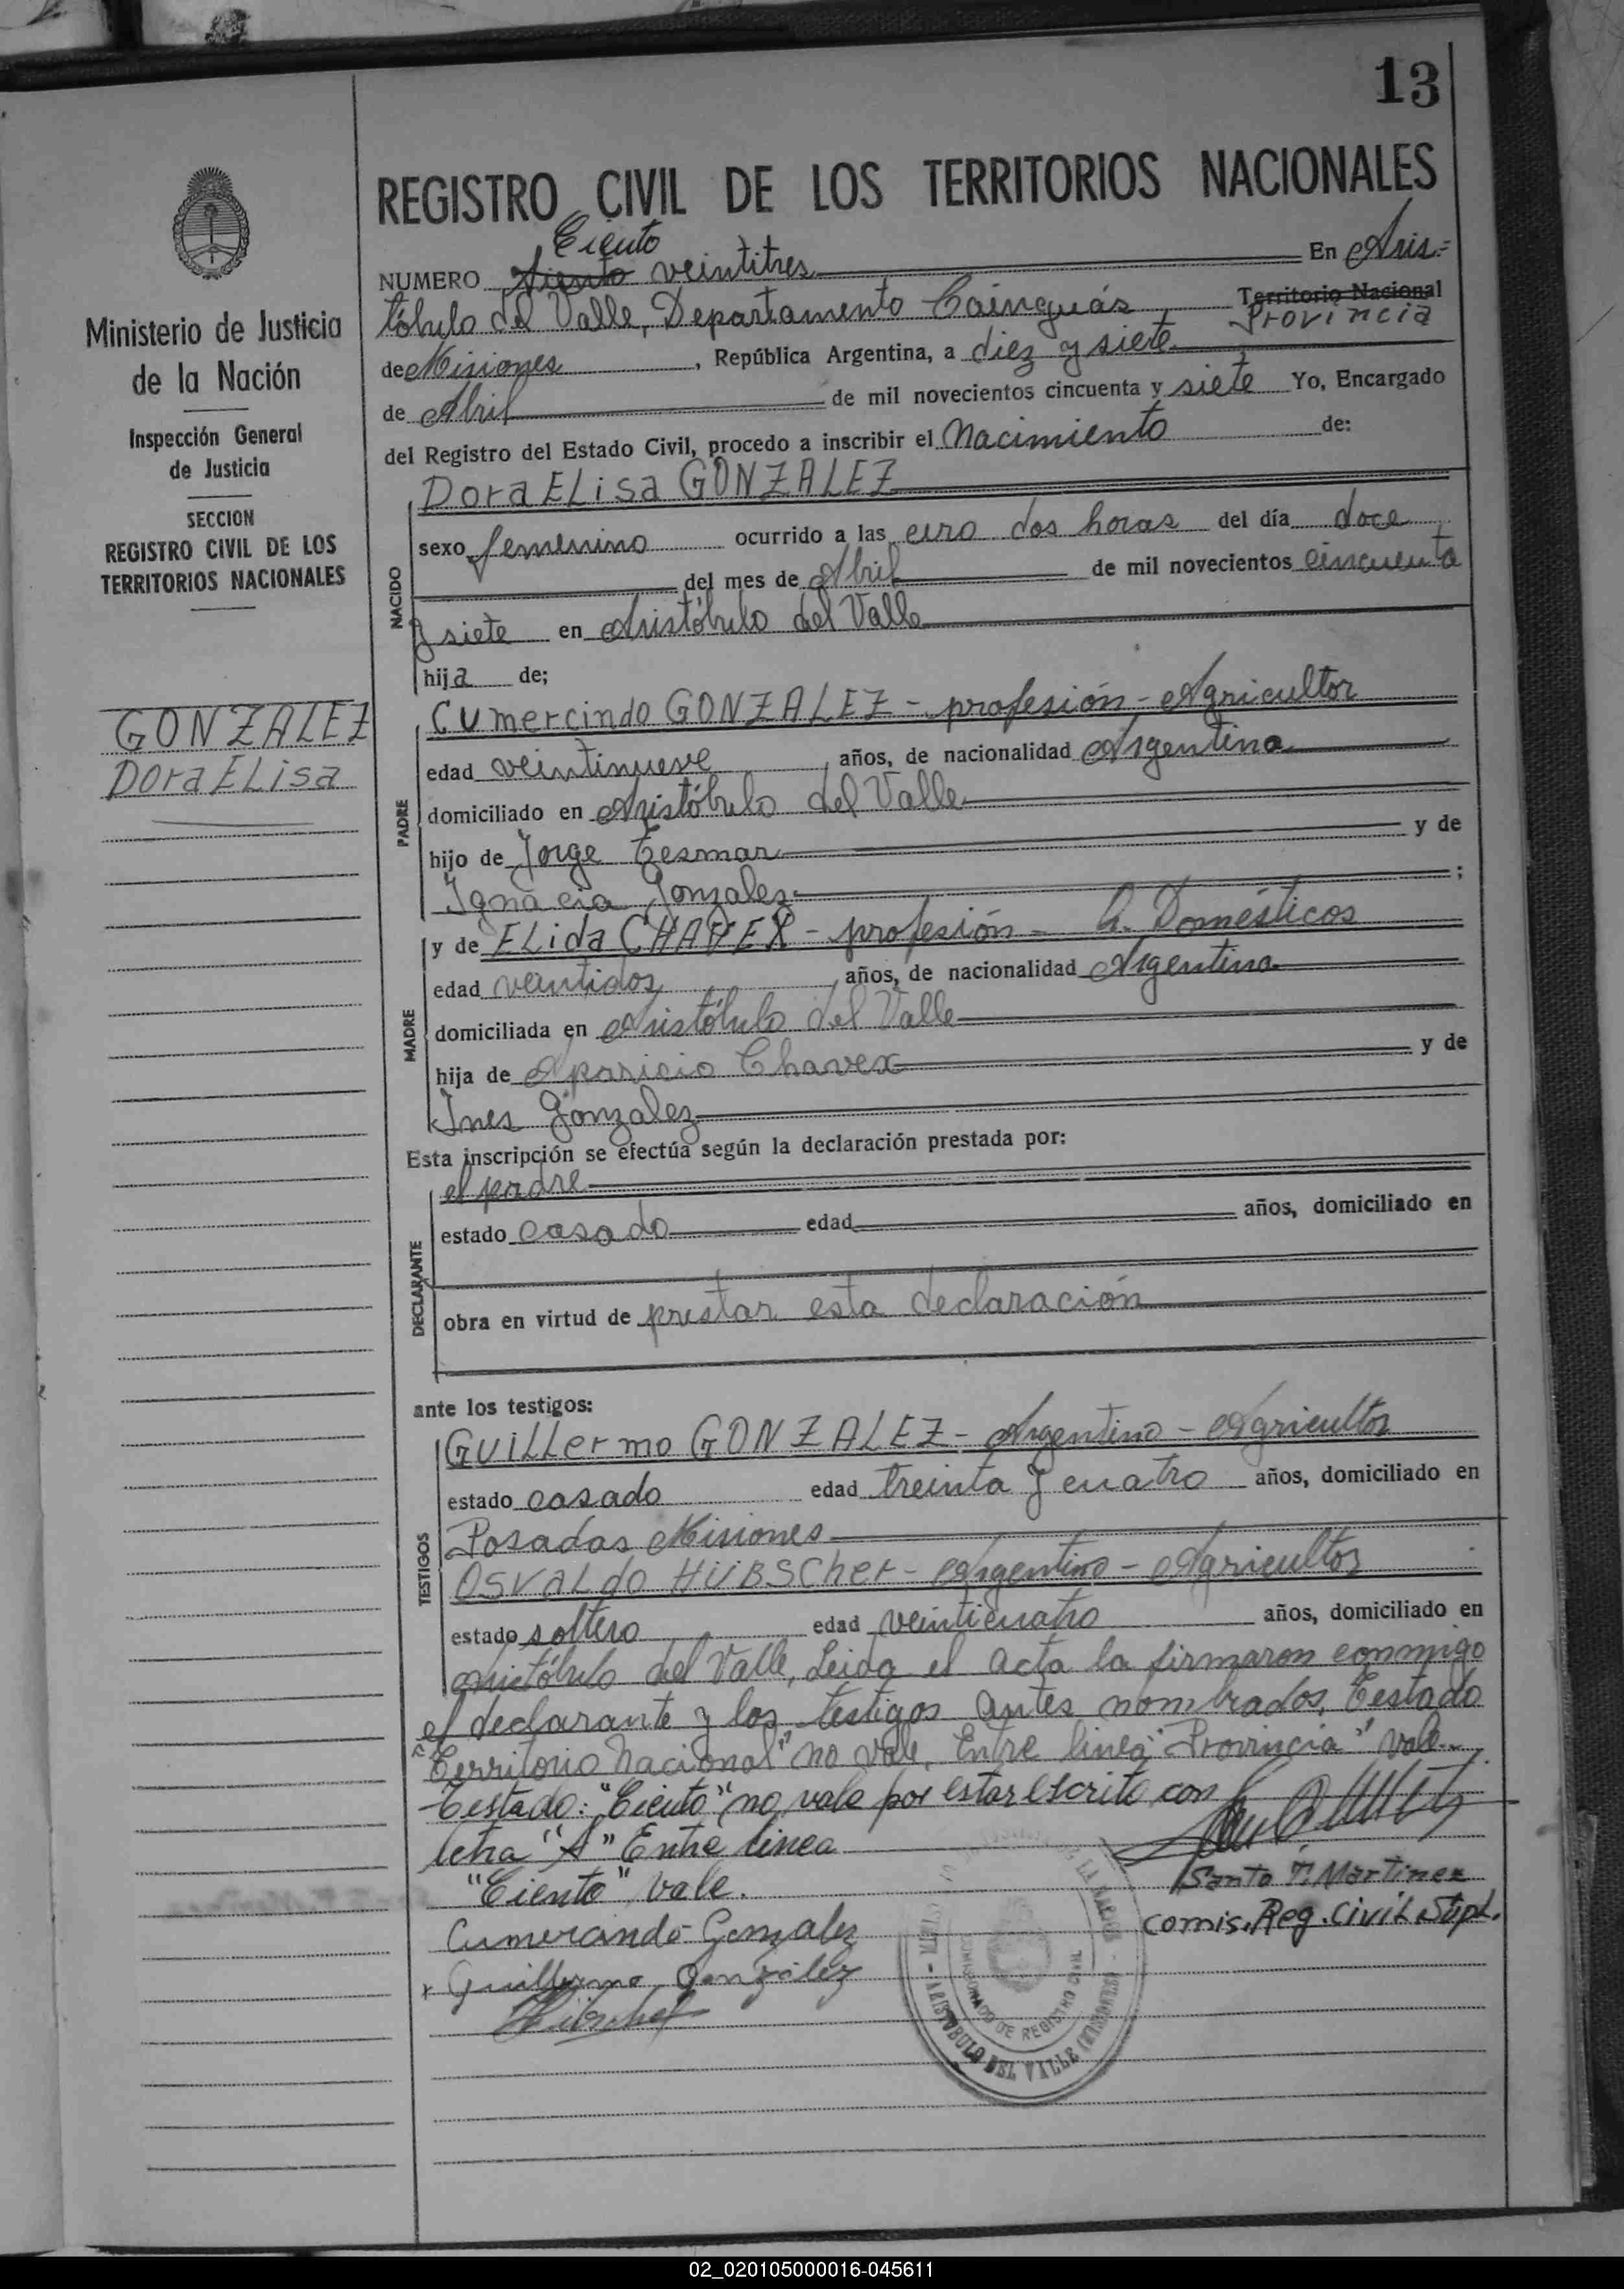 13
REGISTRO CIVIL DE LOS TERRITORIOS NACIONALES
Ministerio de Justicia
de la Nación
Inspección General
de Justicia
SECCION
REGISTRO CIVIL DE LOS
TERRITORIOS NACIONALES
GONZALEZ
Dora ELisa
Ciento
NUMERO Siento veintitres En Aris-
tóbulo del Valle, Departamento Cainguás, Territorio Nacional
Provincia
de Misiones, República Argentina, a diez y siete
de Abril de mil novecientos cincuenta y siete Yo, Encargado
del Registro del Estado Civil, procedo a inscribir el Nacimiento de:
NACIDO
Dora ELisa GONZALEZ
sexo femenino ocurrido a las cero dos horas del día doce
del mes de Abril de mil novecientos cincuenta
y siete en Aristóbulo del Valle
hija de;
PADRE
CUmercindo GONZALEZ - profesión - Agricultor
edad veintinueve años, de nacionalidad Argentina
domiciliado en Aristóbulo del Valle
hijo de Jorge Tesmar y de
Ignacia Gonzalez ;
MADRE
y de ELida CHAVEX - profesión - Q. Domésticos
edad veintidos, años, de nacionalidad Argentina
domiciliada en Aristóbulo del Valle
hija de Aparicio Chavex y de
Ines Gonzalez
Esta inscripción se efectúa según la declaración prestada por:
DECLARANTE
el padre
estado casado edad años, domiciliado en
obra en virtud de prestar esta declaración
ante los testigos:
TESTIGOS
GUiLLermo GONZALEZ - Argentino - Agricultor
estado casado edad treinta y cuatro años, domiciliado en
Posadas Misiones
OSVALdo HÜBSCher - Argentino - Agricultor
estado soltero edad veinticuatro años, domiciliado en
Aristóbulo del Valle, Leida el acta la firmaron conmigo
el declarante y los testigos antes nombrados, Testado
"Territorio Nacional" no vale, Entre linea "Provincia" vale.
Testado: "Ciento" no vale por estar escrito con
letra "S" Entre linea
"Ciento" vale.
Santo F. Martinez
comis. Reg. Civil Supl.
Cumercindo Gonzalez
Guillermo González
Hübscher
ARISTOBULO DEL VALLE (MISIONES)
DE REGISTRO CIVIL
DE LA NACION
02_020105000016-045611